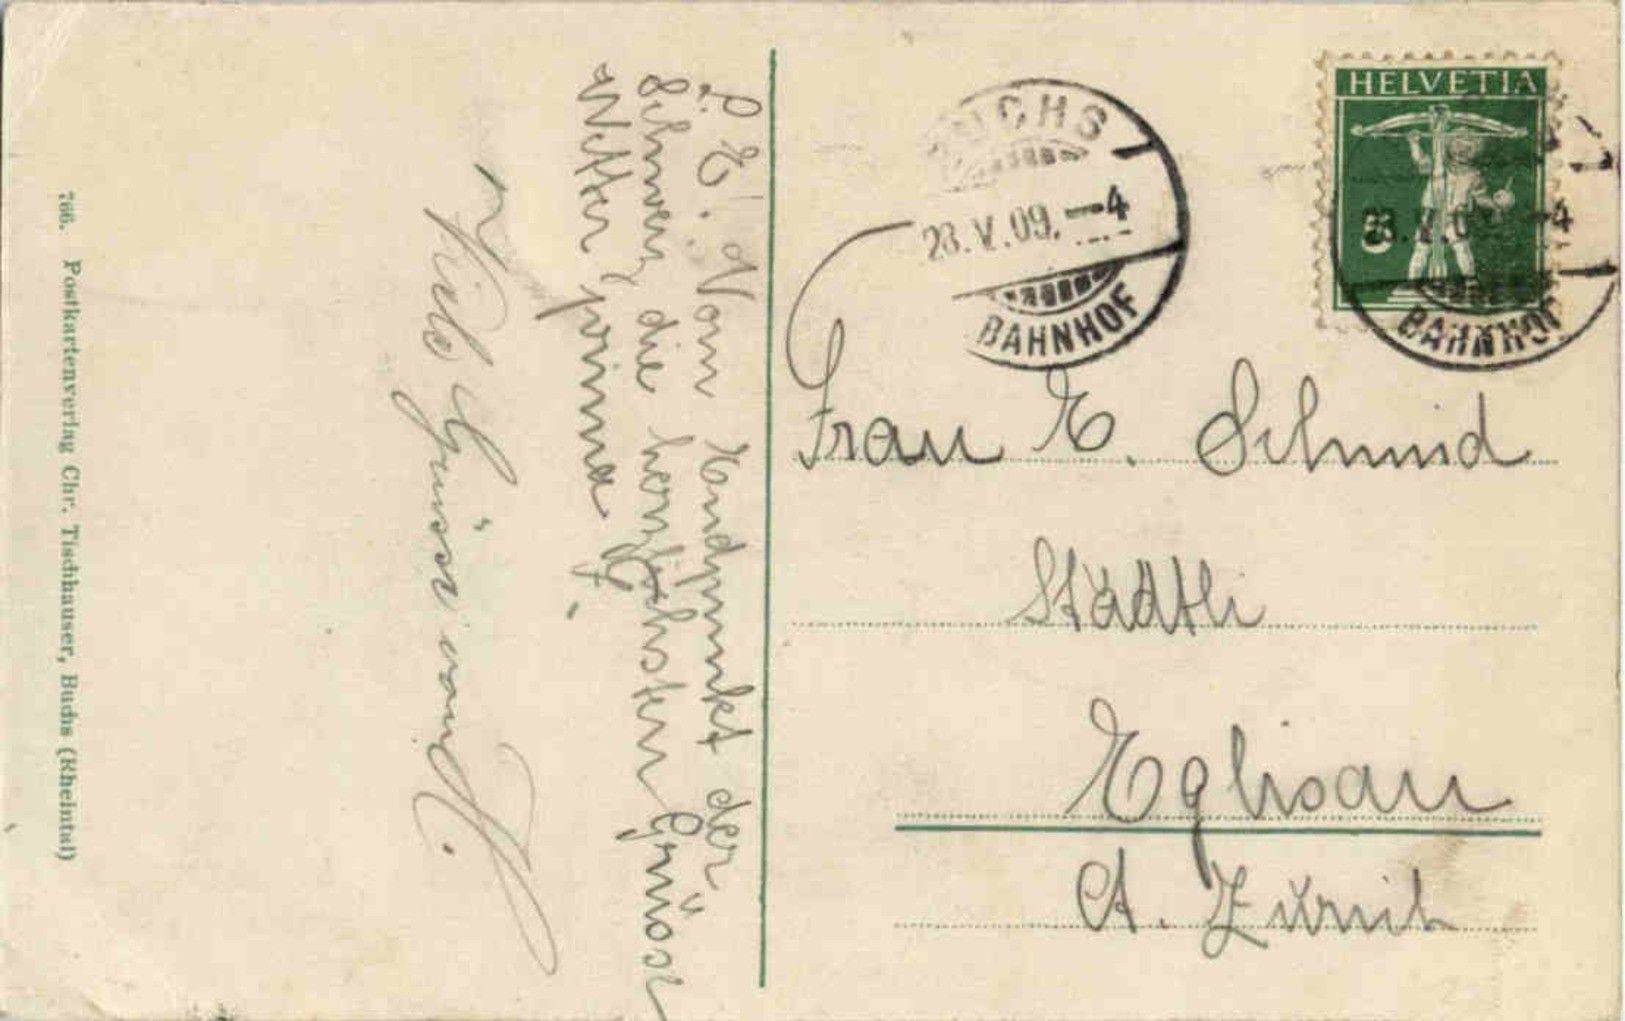 L. E. Vom Endpunkt der
Schweiz die herzlichsten Grüsse
Wetter prima
Viele Grüsse von
766. Postkartenverlag Chr. Tischhauser, Buchs (Rheintal)
HELVETIA
BUCHS
23.V.09.-4
BAHNHOF
23.V.09.-4
BAHNHOF
Frau E. Schmid
Städtli
Eglisau
Ct. Zürich